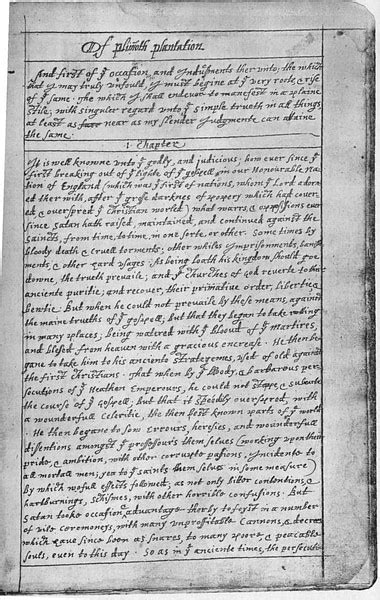 Of plimoth plantation.
And first of yͤ occasion, and Indusments ther unto; the which
that I may truly unfould, I must begine at yͤ very roote, & rise
of yͤ same. The which I shall endevor to manefest in a plaine
stile; with singuler regard unto yͤ simple trueth in all things,
at least as near as my slender Judgmente can attaine
the same.
1. Chapter
It is well knowne unto yͤ godly, and judicious; how ever since yͤ
first breaking out of yͤ lighte of yͤ gospell, in our Honourable na-
tion of England (which was yͤ first of nations, whom yͤ Lord adorn-
ed ther with, after yͤ grose darknes of popery which had cover-
ed, & overspred yͤ christian world) what warrs, & oppossions ever
since, Satan hath raised, maintained, and continued against the
saincts, from time, to time, in one sorte, or other. Some times by
bloody death & cruell torments; other whiles Imprisonments, banish-
ments, & other hard usages. As being loath his kingdom should goe
downe, the trueth prevaile; and yͤ Churches of God reverte to their
anciente puritie; and recover, their primative order, libertie, &
bewtie. But when he could not prevaile by these means, against
the maine trueths of yͤ gospell, but that they began to take rooting
in many places; being watered with yͤ bloud of yͤ martires,
and blesed from heaven with a gracious encrease. He then be-
gane to take him to his anciente strategemes, used of old against
the first christians. That when by yͤ bloody, & barbarous per-
secutions of yͤ Heathen Emperours, he could not stoppe, & subverte
the course of yͤ Gospell; but that it speedily overspred, with
a wounderfull celeritie, the then best known parts of yͤ world.
He then began to sow errours, heresies, and wounderfull
dissentions amongst yͤ professours them selves (working upon their
pride, & ambition, with other corrupte passions, Incidente to
all mortall men; yea to yͤ saints them selves in some measure)
By which wofull effects followed; as not only bitter contentions, &
hartburnings, schismes, with other horrible confusions. But
Satan tooke occasion & advantage therby to foyst in a number
of vile ceremoneys, with many unprofitable Cannons, & decrees
which have since been as snares, to many poore, & peaceable
souls, even to this day. So as in yͤ anciente times, the persecuti-